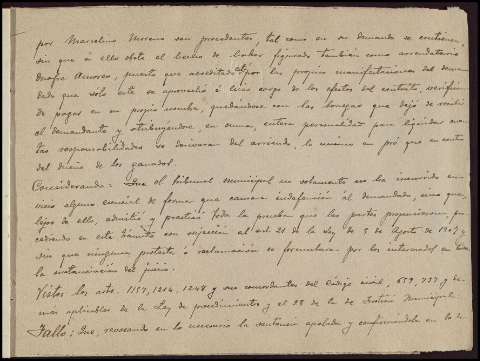 por Marcelino Moreno son procedentes, tal como en su demanda se contienen,
sin que á ello obste el hecho de haber figurado también como arrendatario
Onofre Amoros, puesto que acreditado está por las propias manifestaciones del deman-
dado que solo este se aprovechó é hizo cargo de los efectos del contrato, verifican-
do pagos en su propio nombre, quedándose con las borregas que dejó de recibir
el demandante y atribuyéndose, en suma, entera personalidad para liquidar cuan-
tas responsabilidades se derivaran del arriendo, lo mismo en pró que en contra
del dueño de los ganados.
Considerando: Que el tribunal municipal no solamente no ha incurrido en
vicio alguno esencial de forma que causara indefensión al demandado, sino que,
lejos de ello, admitió y practicó toda la prueba que las partes propusieron, pro-
cediendo en este trámite con sujeción al art. 21 de la Ley de 5 de Agosto de 1907 y
sin que ninguna protesta ó reclamación se formulara por los interesados en toda
la sustanciación del juicio.
Vistos los arts. 1157, 1214, 1248 y sus concordantes del Código civil, 659, 737 y de-
mas aplicables de la Ley de procedimientos y el 28 de la de Justicia Municipal.
Fallo: Que, revocando en lo necesario la sentencia apelada y confirmándola en lo de-